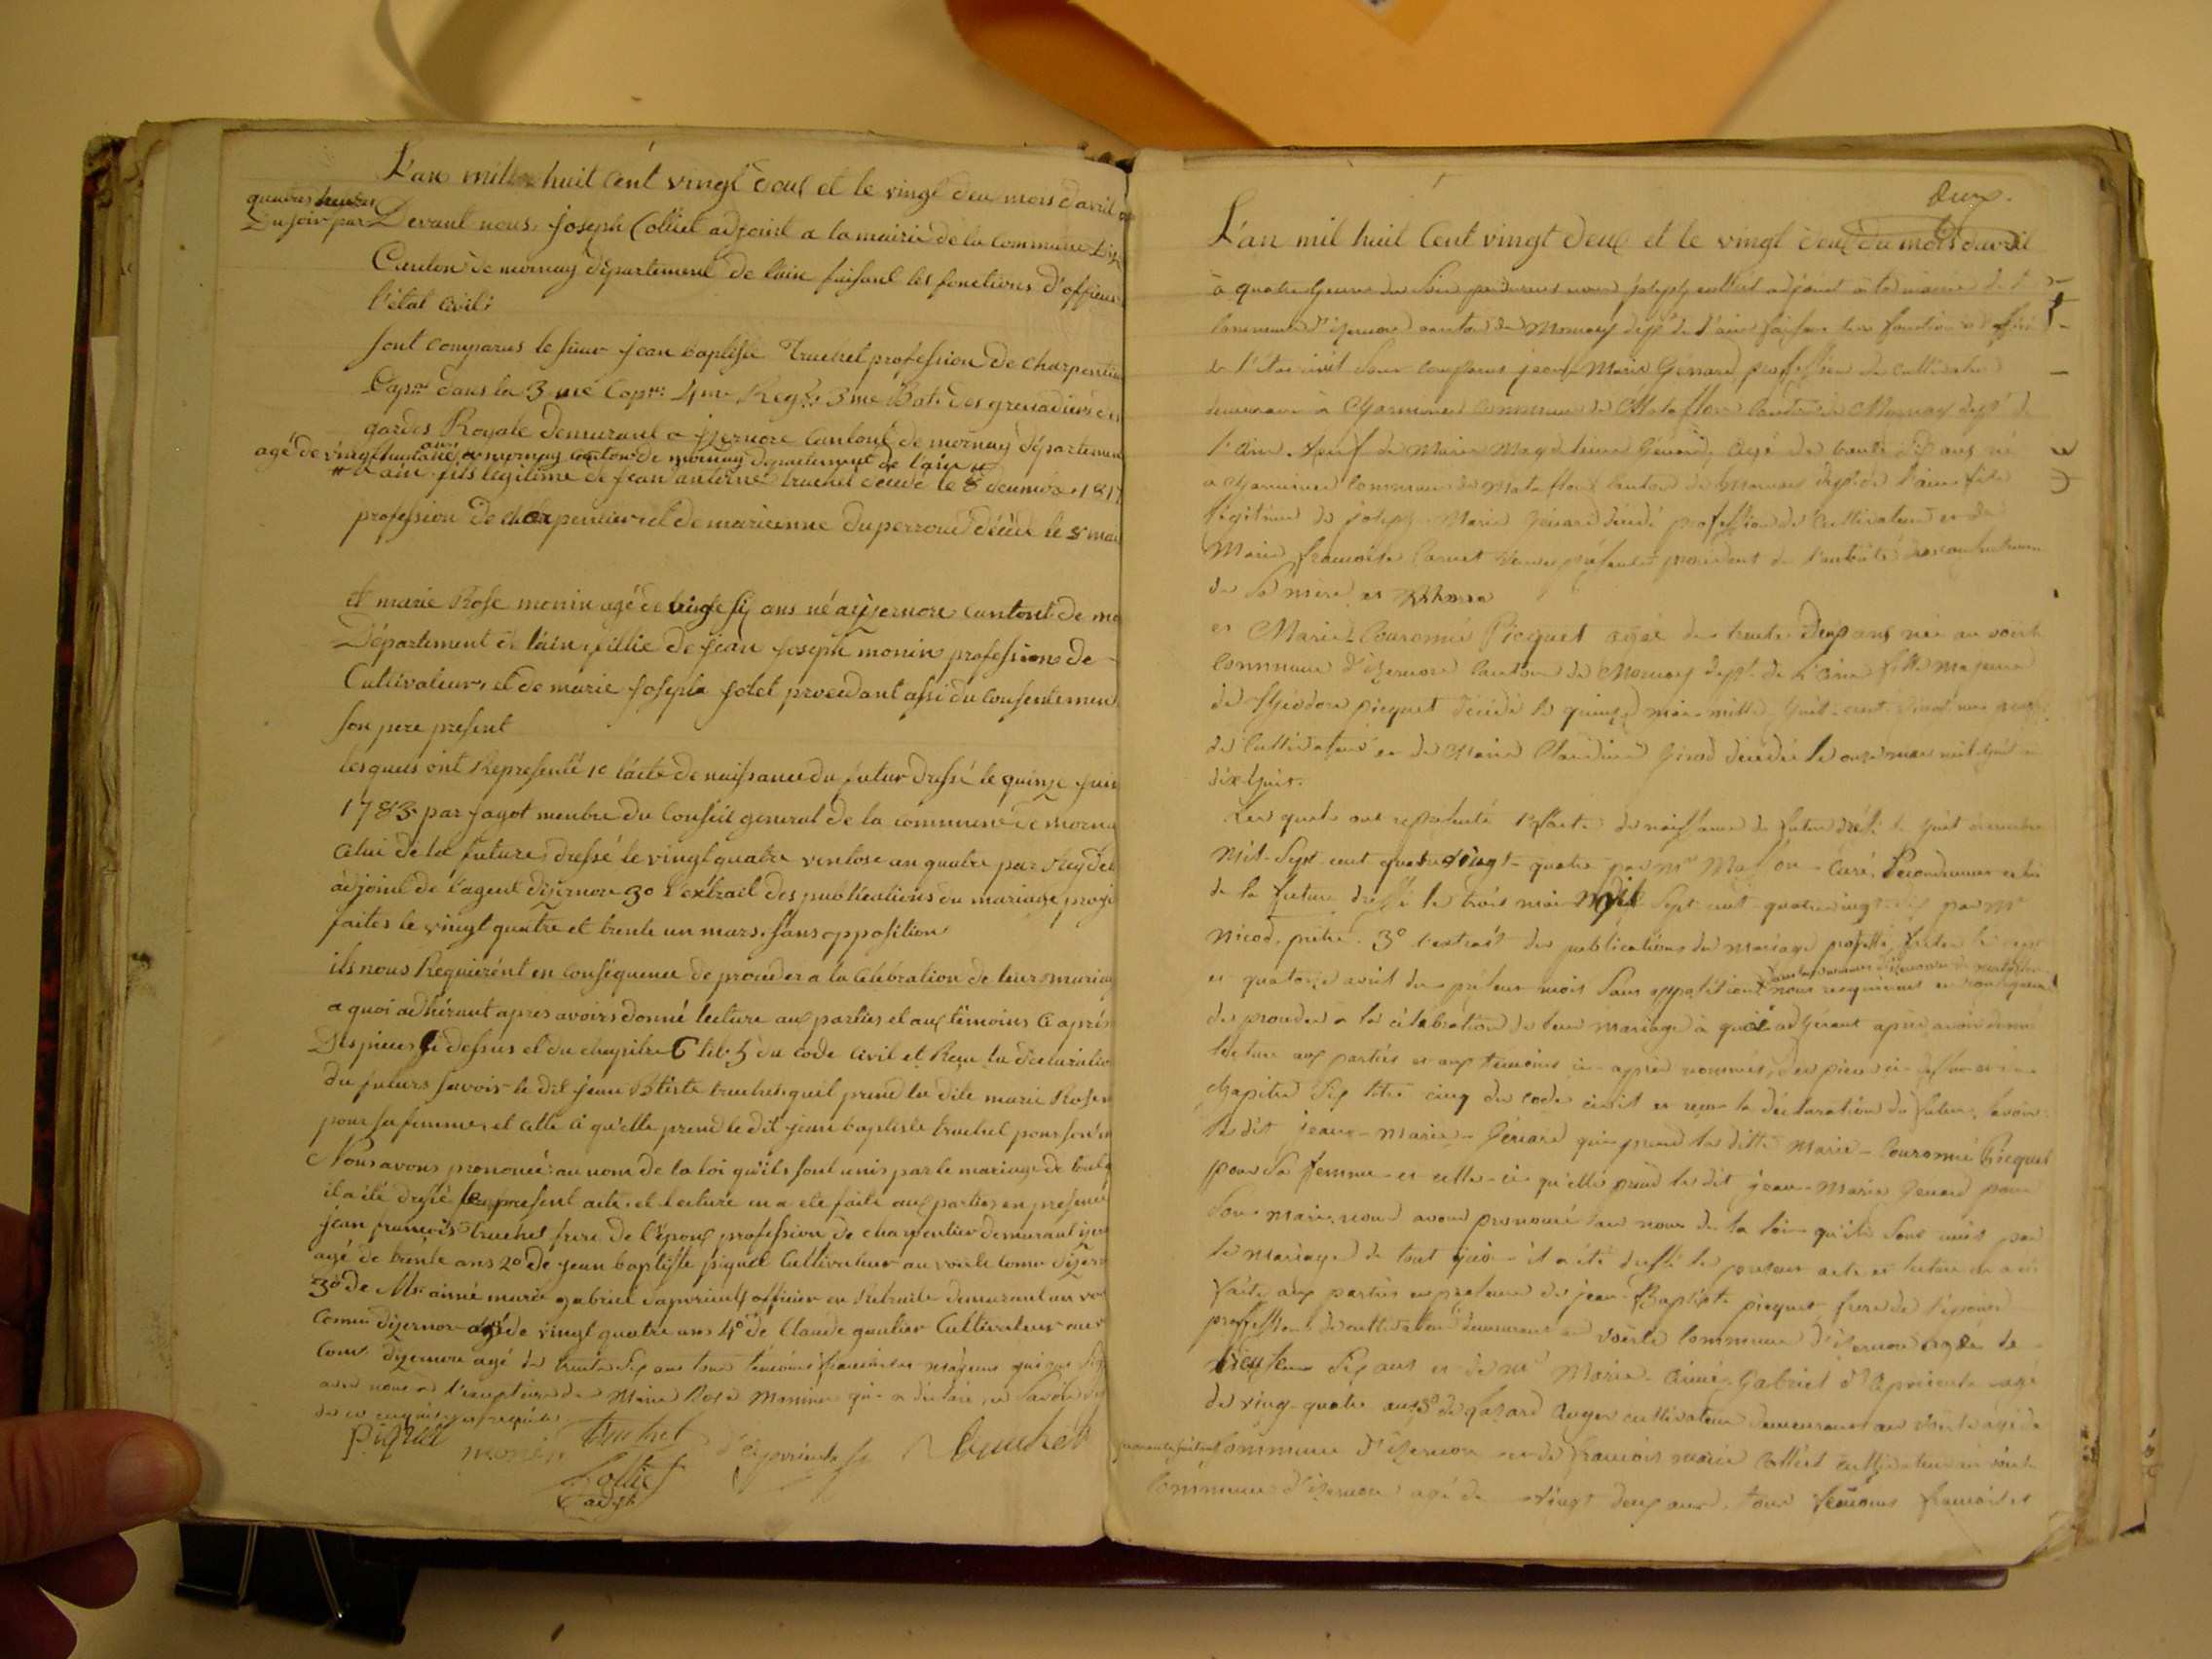 L'an mille huit cent vingt deux et le vingt deu mois d'avril a
quatres heures
du soir par Devant nous, joseph Colliet adjoint a la mairie de la Commune Dize
Canton de mornay département de lain faisant les fonctions d'officier
l'état civil;
sont comparus le sieur jean baptiste Truchet profession de charpentier
Capal dans la 3me Copie 4me Regt 3me Bat. des grenadiers des
gardes Royale demeurant a izernore Cantont de mornay départemen
agé de vingt huit ans né a mornay canton de mornay departement de l'ain
lain fils légitime de jean antoine truchet décédé le 8 1817
profession de charpentier et de marieanne duperroud décédé le mai
et marie Rose monin agé de vingt six ans né a yzernore cantont de mo
Département de lain, fillie de jean joseph monin profession de
Cultivateur, et de marie josephe jolet procedant assi du consentemen
son pere present
lesquels ont Representé 1o lacte de naissance du futur dressé le quinze juin
1783 par jagot menbre du conseil general de la commune de morna
celui de la future, dressé le vingt quatre ventose an quatre par Reydel
adjoint de l'agent dizernore 3o l'extrait des publications du mariage proje
faites le vingt quatre et trente un mars, sans opposition
ils nous Requierént en conséquence de proceder a la Celébration de leurs mariag
a quoi adhérant apres avoirs donné lecture aux parties et aux témoins ci aprés
Des pieces ci dessus et du chapitre 6 tit. 5 du code civil et Recu la declaratio
du futurs savoir le dit jean Btiste truchet, quil prend la dite marie Rose m
pour sa femme, et celle ci qu'elle prend le dit jean baptiste truchet pour son m
Nous avons prononcé au nom de la loi qu'ils sont unis par le mariage de tout q
il a été dressé le present acte, et lecture en a été faite aux parties en presence
jean francois truchet frere de l'epoux profession de charpentier demeurant izer
agé de trente ans 2o de jean baptiste piquet Cultivateur au voerle comu dizern
3o de Mr aimé marie gabriel daprieult officier en Retraite demeurant au vo
Comu dizernore agé de vingt quatre ans 4o de Claude gautier Cultivateur au v
Com. dizernore agé de trente six ans tous témoins francais et majeurs qui ont sig
avec nous a l'exception de Marie Rose Monin qui a déclaré ne savoir sig
de ce enquise et requise
piquet monin truchet truchet
Colliet
adjt
Deux.
L'an mil huit Cent vingt deux et le vingt deux du mois davril
à quatre heures du soir pardevant nous joseph colliet adjoint à la mairie de la
Commune d'izernore canton de Mornay dept de l'ain faisant les fonctions d'officier
de l'état civil sont comparus jean Marie Genard profession de cultivateur
demeurant à Charmines Commune de Matafflon Canton de Mornay dept de
l'ain. veuf de Marie Magdeleine Génod, agé de trente sept ans né
a Charmines Commune de Matafflon canton de Mornay dept de l'ain fils
légitime de joseph Marie Génard décédé profession de cultivateur et de
Marie françoise Carnet veuve présente procédant de l'autorité du consentement
de sa mère et
et Marie-Couronné Picquet agée de trente deux ans née au voerle
Commune d'izernore canton de Mornay dept de l'ain fille majeure
de théodore picquet décédé le quinze mai mille huit cent vingt un
de Cultivateur et de Marie Claudine Girod décédée le onze mai mil huit cent
dix huit.
Les quels ont représenté 1o l'acte de naissance du futur dressé le huit décembre
mil sept cent quatre vingt quatre par mr Masson curé, secondement celui
de la future dressé le trois mai mil sept cent quatrevingt dix par mr
nicod, prétre. 3o l'extrait des publications du mariage projetté faites le sept
et quatorze avril du présent mois sans opposition dans les communes d'izernore de matafflon nous requierent en conséquence
de proceder a la célébration de leur mariage à quoi adhérant après avoir donné
lecture aux parties et aux témoins ci-après nommés, des pieces ci-dessus et du
chapitre six titre cinq du code civil et reçu la déclaration du futur, savoir
le dit jean-marie Génard qu'il prend la ditte Marie-Couronné Picquet
pour sa femme et celle-ci qu'elle prend le dit jean-Marie Genard pour
son mari, nous avons prononcé au nom de la loi qu'ils sont unis par
le mariage de tout quoi il a été dressé le present acte et lecture en a été
faite aux parties en présence de jean-Baptiste picquet frere de l'épouse
profession de cultivateur demeurant au voerle commune d'izernore agée de
trente six ans et de mr Marie-Aimé-Gabriel d'Aprieult agé
de vingt-quatre ans 3o de Lazard Auger cultivateur demeurant au voerle agé de
quarante huit ans Commune d'izernore et de françois marie Colliet cultivateur au voerle
Commune d'izernore agé de vingt deux ans, tous témoins françois et